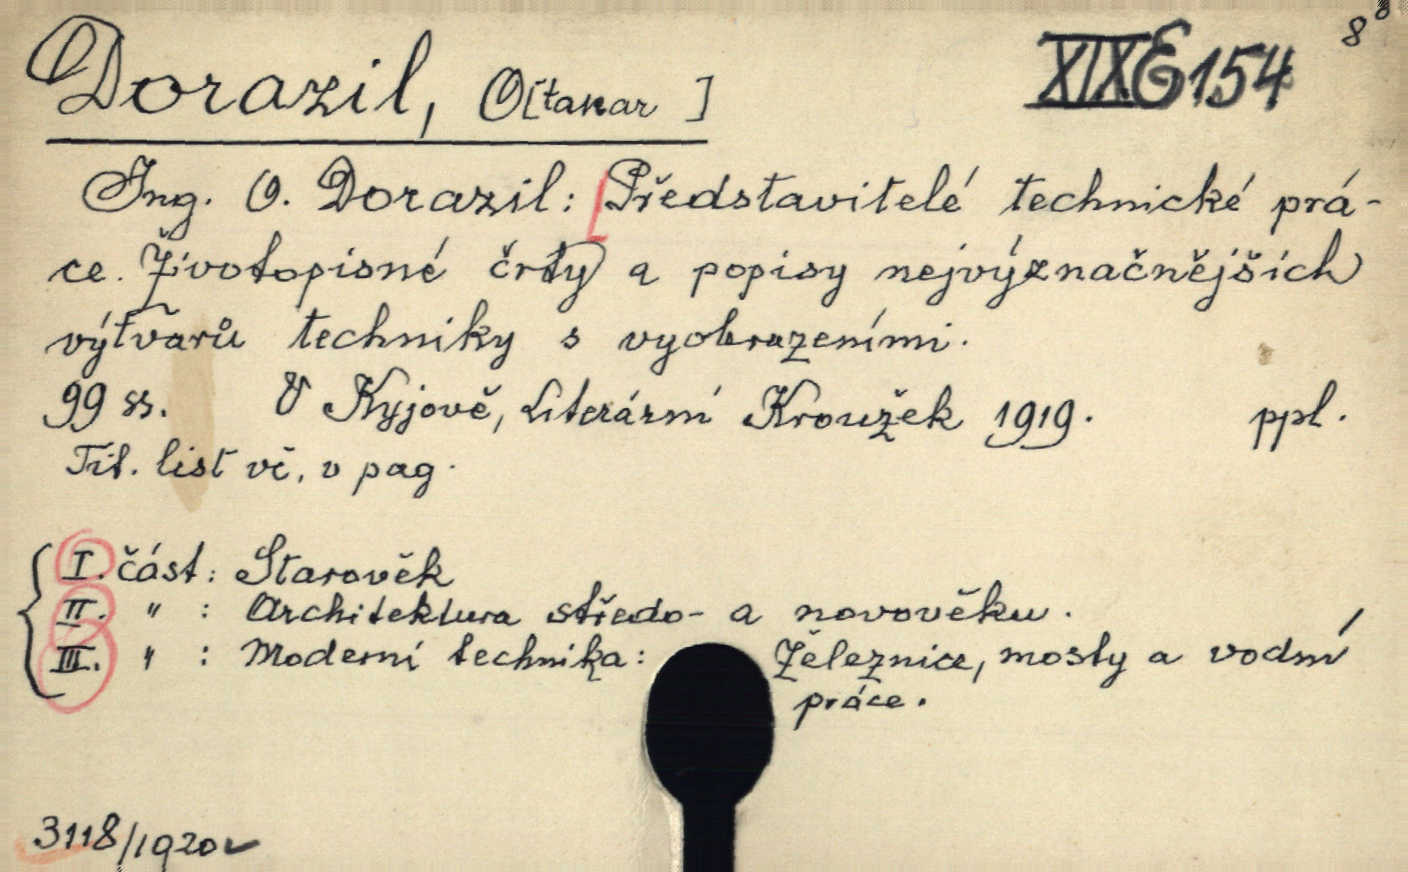 Dorazil, O[takar ]
XIX E 154
8°
Ing. O. Dorazil: [Představitelé technické prá-
ce. Životopisné črty a popisy nejvýznačnějších
výtvarů techniky s vyobrazeními.
99 ss. V Kyjově, Literární Kroužek 1919. ppl.
Tit. list vč. v pag.
I. část: Starověk
II. " : Architektura středo- a novověku.
III. " : Moderní technika: Železnice, mosty a vodní
práce.
3118/1920